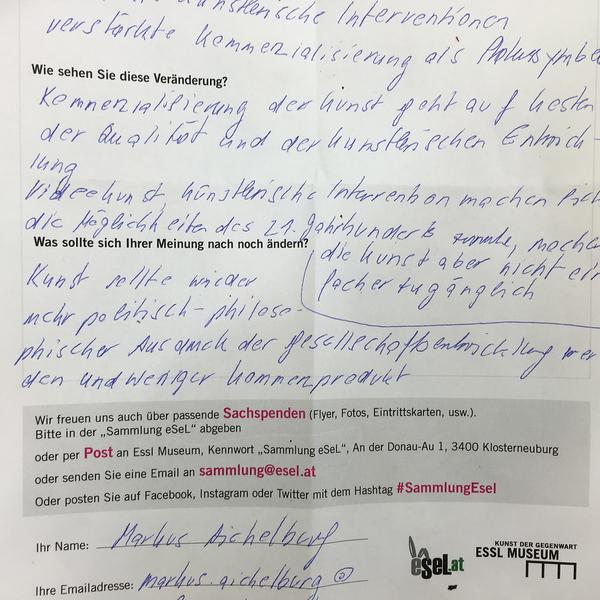 künstlerische Interventionen
verstärkte Kommerzialisierung als
Wie sehen Sie diese Veränderung?
Kommerzialisierung der Kunst geht auf Kosten
der Qualität und der künstlerischen Entwick-
lung
Videokunst, künstlerische Intervention machen sich
die Möglichkeiten des 21. Jahrhunderts zunute, mach
Was sollte sich Ihrer Meinung nach noch ändern?
die Kunst aber nicht ein
facher zugänglich
Kunst sollte wieder
mehr politisch-philoso-
phischer Ausdruck der Gesellschaftsentwicklung wer
den und weniger Kommerzprodukt
Wir freuen uns auch über passende Sachspenden (Flyer, Fotos, Eintrittskarten, usw.).
Bitte in der „Sammlung eSeL“ abgeben
oder per Post an Essl Museum, Kennwort „Sammlung eSeL“, An der Donau-Au 1, 3400 Klosterneuburg
oder senden Sie eine Email an sammlung@esel.at
Oder posten Sie auf Facebook, Instagram oder Twitter mit dem Hashtag #SammlungEsel
Ihr Name: Markus Aichelburg
esel.at
KUNST DER GEGENWART
ESSL MUSEUM
Ihre Emailadresse: markus.aichelburg@